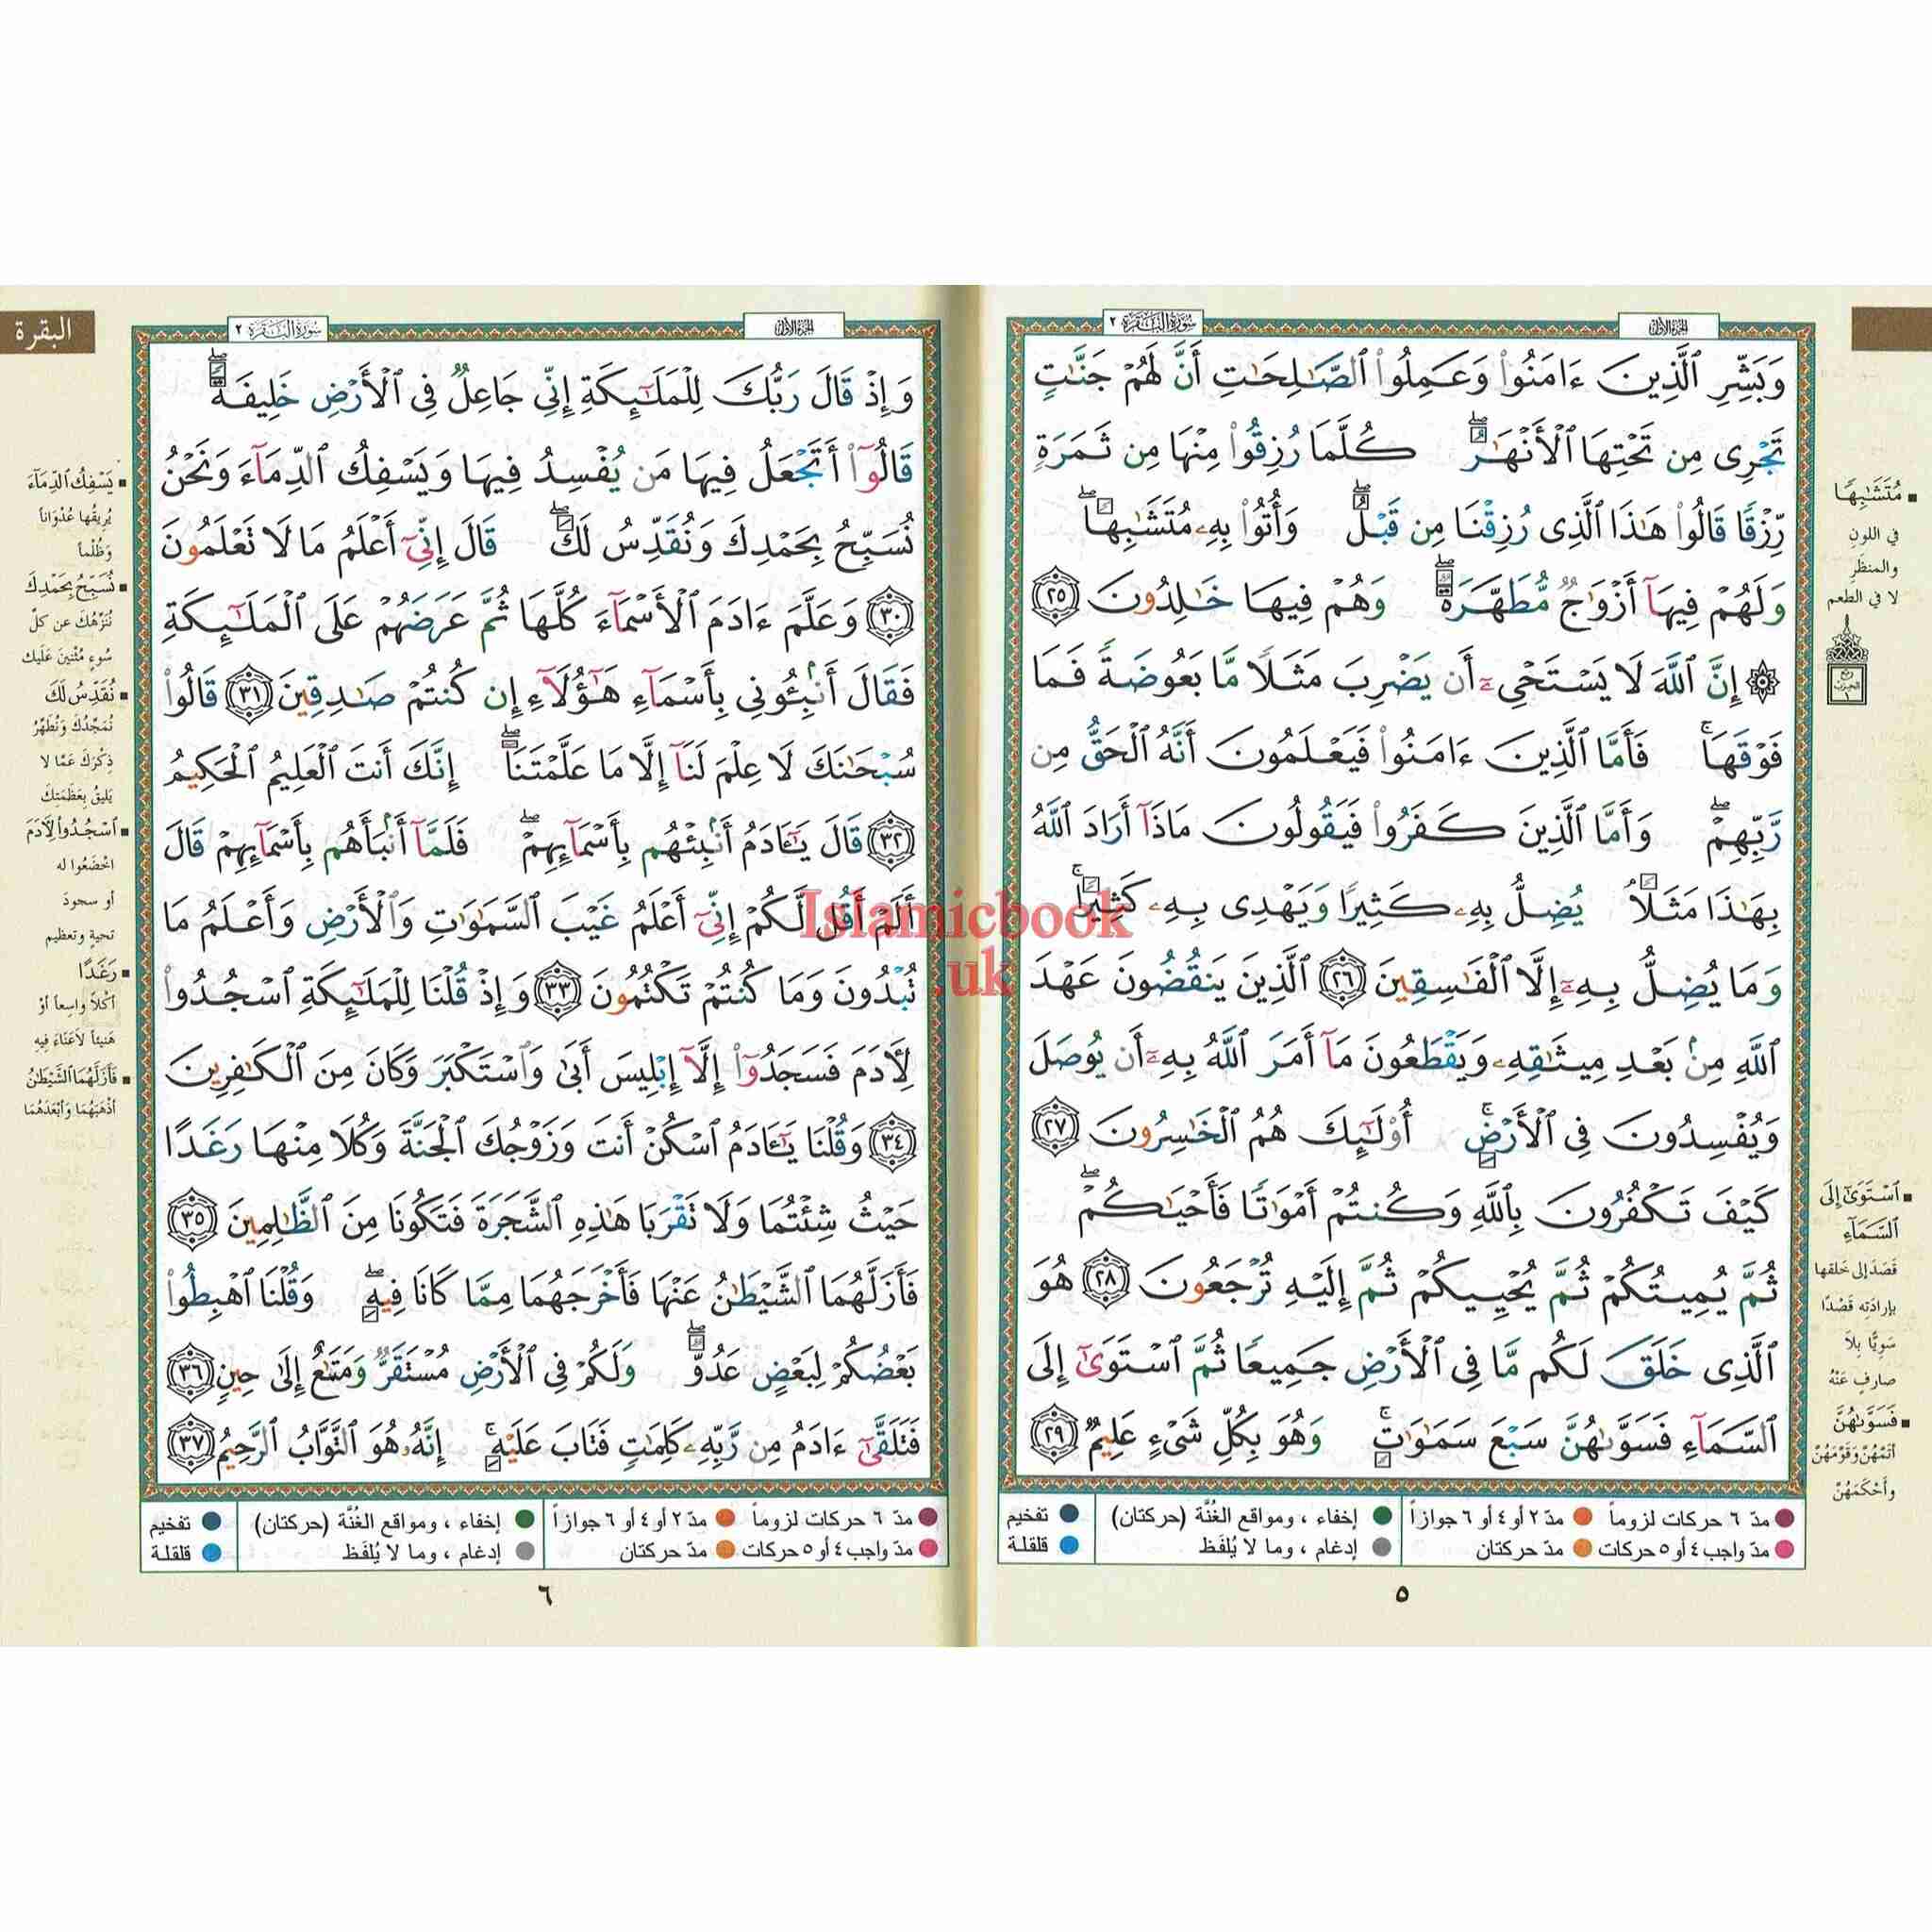 الجزء الأول
سورة البقرة ٢
وَبَشِّرِ ٱلَّذِينَ ءَامَنُوا۟ وَعَمِلُوا۟ ٱلصَّـٰلِحَـٰتِ أَنَّ لَهُمْ جَنَّـٰتٍ
تَجْرِى مِن تَحْتِهَا ٱلْأَنْهَـٰرُ ۖ كُلَّمَا رُزِقُوا۟ مِنْهَا مِن ثَمَرَةٍ
رِّزْقًا قَالُوا۟ هَـٰذَا ٱلَّذِى رُزِقْنَا مِن قَبْلُ ۖ وَأُتُوا۟ بِهِۦ مُتَشَـٰبِهًا ۖ
وَلَهُمْ فِيهَآ أَزْوَٰجٌ مُّطَهَّرَةٌ ۖ وَهُمْ فِيهَا خَـٰلِدُونَ ٢٥
۞ إِنَّ ٱللَّهَ لَا يَسْتَحْىِۦٓ أَن يَضْرِبَ مَثَلًا مَّا بَعُوضَةً فَمَا
فَوْقَهَا ۚ فَأَمَّا ٱلَّذِينَ ءَامَنُوا۟ فَيَعْلَمُونَ أَنَّهُ ٱلْحَقُّ مِن
رَّبِّهِمْ ۖ وَأَمَّا ٱلَّذِينَ كَفَرُوا۟ فَيَقُولُونَ مَاذَآ أَرَادَ ٱللَّهُ
بِهَـٰذَا مَثَلًا ۘ يُضِلُّ بِهِۦ كَثِيرًا وَيَهْدِى بِهِۦ كَثِيرًا ۚ
وَمَا يُضِلُّ بِهِۦٓ إِلَّا ٱلْفَـٰسِقِينَ ٢٦ ٱلَّذِينَ يَنقُضُونَ عَهْدَ
ٱللَّهِ مِنۢ بَعْدِ مِيثَـٰقِهِۦ وَيَقْطَعُونَ مَآ أَمَرَ ٱللَّهُ بِهِۦٓ أَن يُوصَلَ
وَيُفْسِدُونَ فِى ٱلْأَرْضِ ۚ أُو۟لَـٰٓئِكَ هُمُ ٱلْخَـٰسِرُونَ ٢٧
كَيْفَ تَكْفُرُونَ بِٱللَّهِ وَكُنتُمْ أَمْوَٰتًا فَأَحْيَـٰكُمْ ۖ
ثُمَّ يُمِيتُكُمْ ثُمَّ يُحْيِيكُمْ ثُمَّ إِلَيْهِ تُرْجَعُونَ ٢٨ هُوَ
ٱلَّذِى خَلَقَ لَكُم مَّا فِى ٱلْأَرْضِ جَمِيعًا ثُمَّ ٱسْتَوَىٰٓ إِلَى
ٱلسَّمَآءِ فَسَوَّىٰهُنَّ سَبْعَ سَمَـٰوَٰتٍ ۚ وَهُوَ بِكُلِّ شَىْءٍ عَلِيمٌ ٢٩
مُتَشَـٰبِهًا
في اللونِ
والمنظَرِ
لا في الطعم
ربع
الحزب
١
ٱسْتَوَىٰٓ إِلَى
ٱلسَّمَآءِ
قَصَدَ إلى خَلقها
بإرادَتِه قَصْدًا
سَوِيًّا بِلَا
صارفٍ عَنْهُ
فَسَوَّىٰهُنَّ
أَتَمَّهُنَّ وَقَوَّمَهُنَّ
وأَحْكَمَهُنَّ
مدّ ٦ حركات لزوماً
مدّ ٢ أو ٤ أو ٦ جوازاً
إخفاء ، ومواقع الغُنَّة (حركتان)
تفخيم
مدّ واجب ٤ أو ٥ حركات
مدّ حركتان
إدغام ، وما لا يُلفَظ
قلقلة
٥
البقرة
الجزء الأول
سورة البقرة ٢
وَإِذْ قَالَ رَبُّكَ لِلْمَلَـٰٓئِكَةِ إِنِّى جَاعِلٌ فِى ٱلْأَرْضِ خَلِيفَةً ۖ
قَالُوٓا۟ أَتَجْعَلُ فِيهَا مَن يُفْسِدُ فِيهَا وَيَسْفِكُ ٱلدِّمَآءَ وَنَحْنُ
نُسَبِّحُ بِحَمْدِكَ وَنُقَدِّسُ لَكَ ۖ قَالَ إِنِّىٓ أَعْلَمُ مَا لَا تَعْلَمُونَ
٣٠ وَعَلَّمَ ءَادَمَ ٱلْأَسْمَآءَ كُلَّهَا ثُمَّ عَرَضَهُمْ عَلَى ٱلْمَلَـٰٓئِكَةِ
فَقَالَ أَنۢبِـُٔونِى بِأَسْمَآءِ هَـٰٓؤُلَآءِ إِن كُنتُمْ صَـٰدِقِينَ ٣١ قَالُوا۟
سُبْحَـٰنَكَ لَا عِلْمَ لَنَآ إِلَّا مَا عَلَّمْتَنَآ ۖ إِنَّكَ أَنتَ ٱلْعَلِيمُ ٱلْحَكِيمُ
٣٢ قَالَ يَـٰٓـَٔادَمُ أَنۢبِئْهُم بِأَسْمَآئِهِمْ ۖ فَلَمَّآ أَنۢبَأَهُم بِأَسْمَآئِهِمْ قَالَ
أَلَمْ أَقُل لَّكُمْ إِنِّىٓ أَعْلَمُ غَيْبَ ٱلسَّمَـٰوَٰتِ وَٱلْأَرْضِ وَأَعْلَمُ مَا
تُبْدُونَ وَمَا كُنتُمْ تَكْتُمُونَ ٣٣ وَإِذْ قُلْنَا لِلْمَلَـٰٓئِكَةِ ٱسْجُدُوا۟
لِـَٔادَمَ فَسَجَدُوٓا۟ إِلَّآ إِبْلِيسَ أَبَىٰ وَٱسْتَكْبَرَ وَكَانَ مِنَ ٱلْكَـٰفِرِينَ
٣٤ وَقُلْنَا يَـٰٓـَٔادَمُ ٱسْكُنْ أَنتَ وَزَوْجُكَ ٱلْجَنَّةَ وَكُلَا مِنْهَا رَغَدًا
حَيْثُ شِئْتُمَا وَلَا تَقْرَبَا هَـٰذِهِ ٱلشَّجَرَةَ فَتَكُونَا مِنَ ٱلظَّـٰلِمِينَ ٣٥
فَأَزَلَّهُمَا ٱلشَّيْطَـٰنُ عَنْهَا فَأَخْرَجَهُمَا مِمَّا كَانَا فِيهِ ۖ وَقُلْنَا ٱهْبِطُوا۟
بَعْضُكُمْ لِبَعْضٍ عَدُوٌّ ۖ وَلَكُمْ فِى ٱلْأَرْضِ مُسْتَقَرٌّ وَمَتَـٰعٌ إِلَىٰ حِينٍ ٣٦
فَتَلَقَّىٰٓ ءَادَمُ مِن رَّبِّهِۦ كَلِمَـٰتٍ فَتَابَ عَلَيْهِ ۚ إِنَّهُۥ هُوَ ٱلتَّوَّابُ ٱلرَّحِيمُ ٣٧
يَسْفِكُ ٱلدِّمَآءَ
يُرِيقُها عُدْوَاناً
وَظُلْماً
نُسَبِّحُ بِحَمْدِكَ
نُنَزِّهُكَ عن كلّ
سُوءٍ مُثْنِينَ عَلَيك
نُقَدِّسُ لَكَ
نُمَجِّدُكَ وَنُطَهِّرُ
ذِكْرَكَ عَمَّا لا
يَلِيقُ بِعَظَمَتِكَ
ٱسْجُدُوا۟ لِـَٔادَمَ
اخْضَعُوا له
أو سجودَ
تحيةٍ وتعظيم
رَغَدًا
أَكْلًا واسِعاً أوْ
هَنِيئاً لاَعَنَاءَ فِيهِ
فَأَزَلَّهُمَا ٱلشَّيْطَـٰنُ
أذْهَبَهُمَا وَأَبْعَدَهُمَا
مدّ ٦ حركات لزوماً
مدّ ٢ أو ٤ أو ٦ جوازاً
إخفاء ، ومواقع الغُنَّة (حركتان)
تفخيم
مدّ واجب ٤ أو ٥ حركات
مدّ حركتان
إدغام ، وما لا يُلفَظ
قلقلة
٦
Islamicbook
.uk